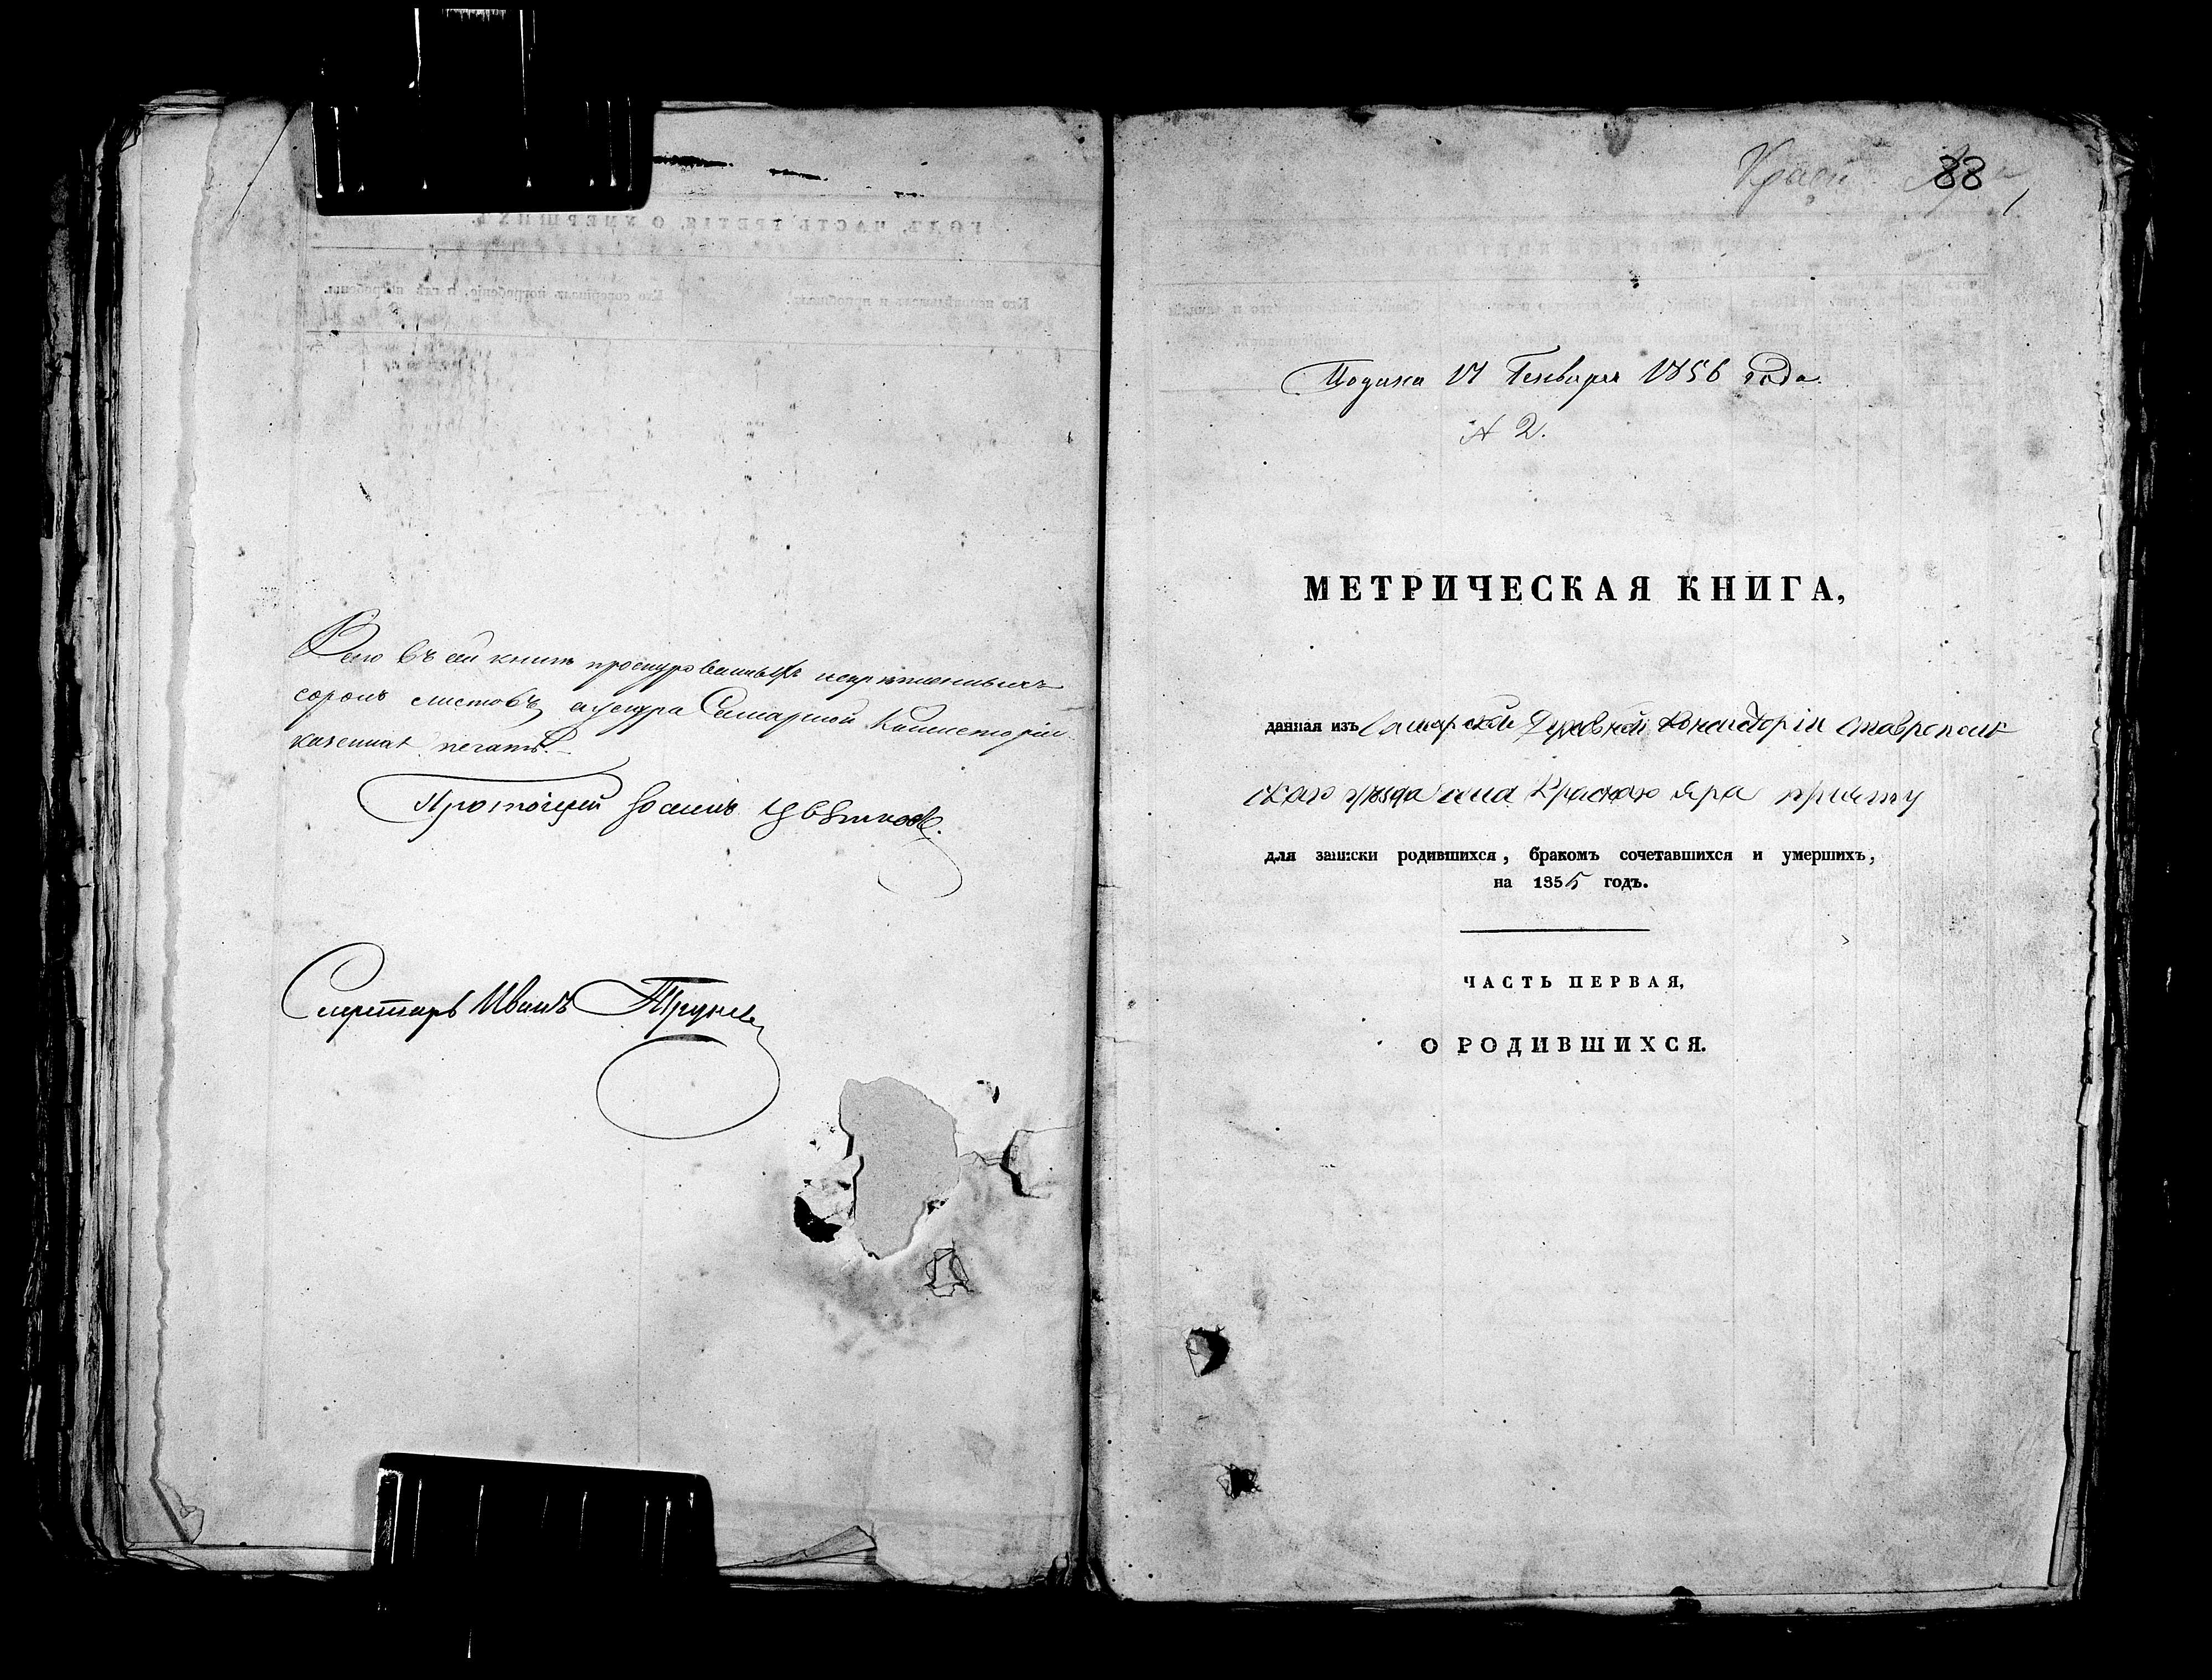 Всего въ сей книгѣ прошнурованныхъ и скрѣпленныхъ
сорокъ листовъ, а у шнура Самарской Консисторіи
казенная печать.
Протоіерей Іоаннъ Цвѣтковъ.
Секретарь Иванъ
88
Подана 17 Генваря 1856 года.
№ 2.
МЕТРИЧЕСКАЯ КНИГА,
данная изъ Самарской Духовной Консисторіи Ставрополь
скаго уѣзда села Краснаго Яра причту
для записки родившихся, бракомъ сочетавшихся и умершихъ,
на 1855 годъ.
ЧАСТЬ ПЕРВАЯ,
О РОДИВШИХСЯ.